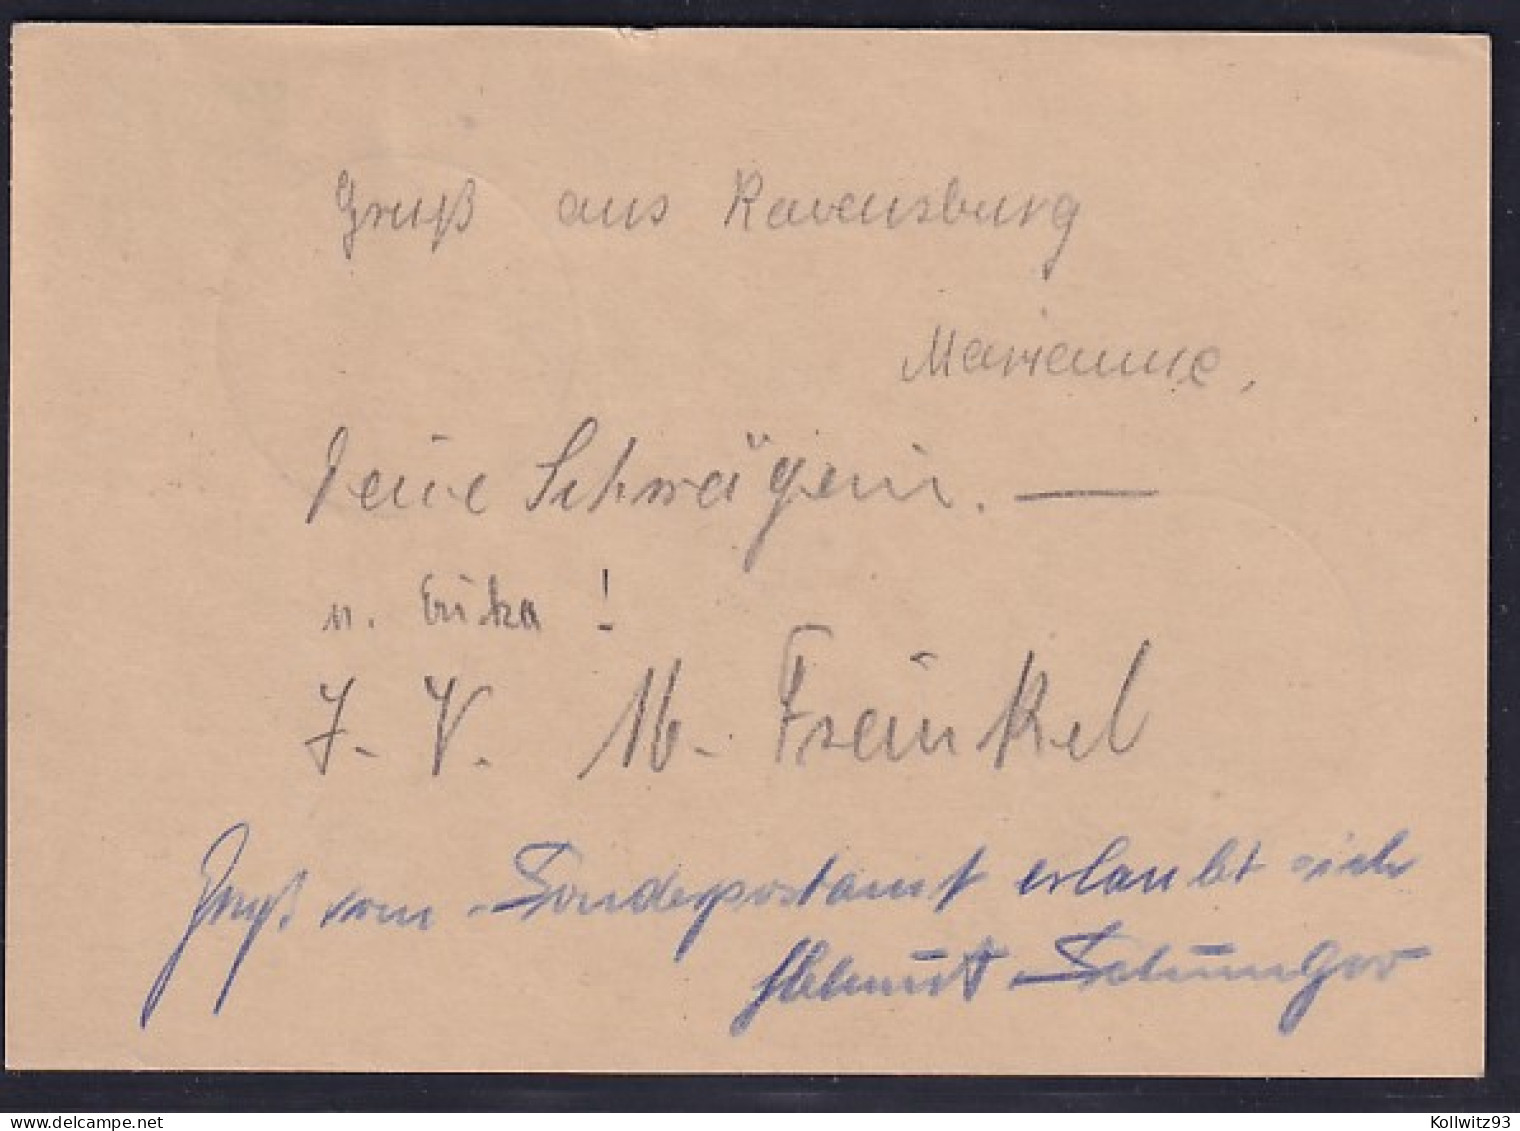 Gruß aus Ravensburg
Marianne,
Deine Schwägerin. —
u. Erika !
J. V. M. Freinkel
Gruß vom Sonderpostamt erlaubt sich
Helmut
Kollwitz93